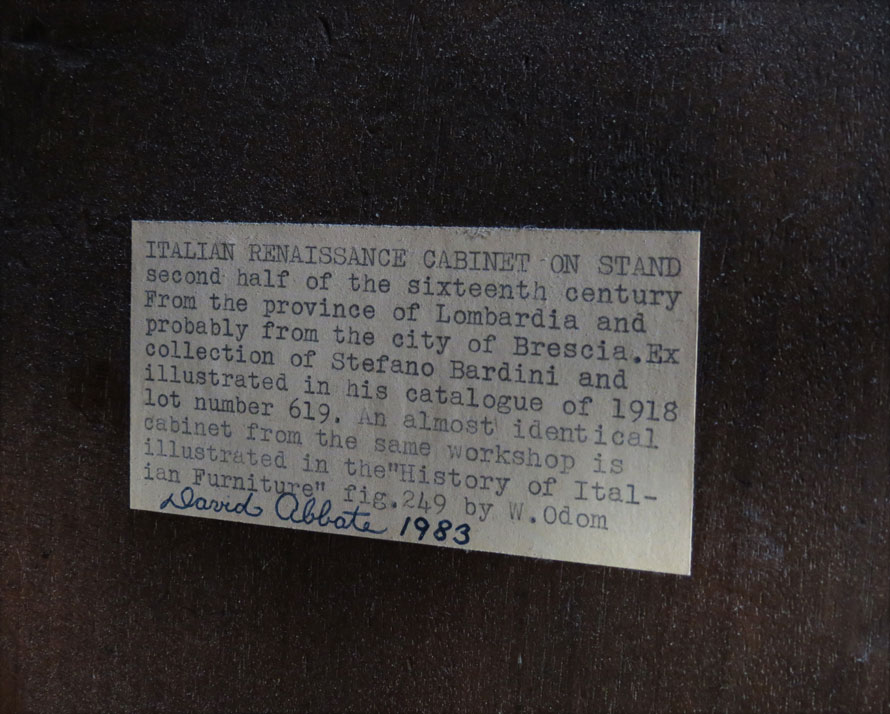 ITALIAN RENAISSANCE CABINET ON STAND
second half of the sixteenth century
From the province of Lombardia and
probably from the city of Brescia.Ex
collection of Stefano Bardini and
illustrated in his catalogue of 1918
lot number 619. An almost identical
cabinet from the same workshop is
illustrated in the"History of Ital-
ian Furniture" fig.249 by W.Odom
David Abbate 1983